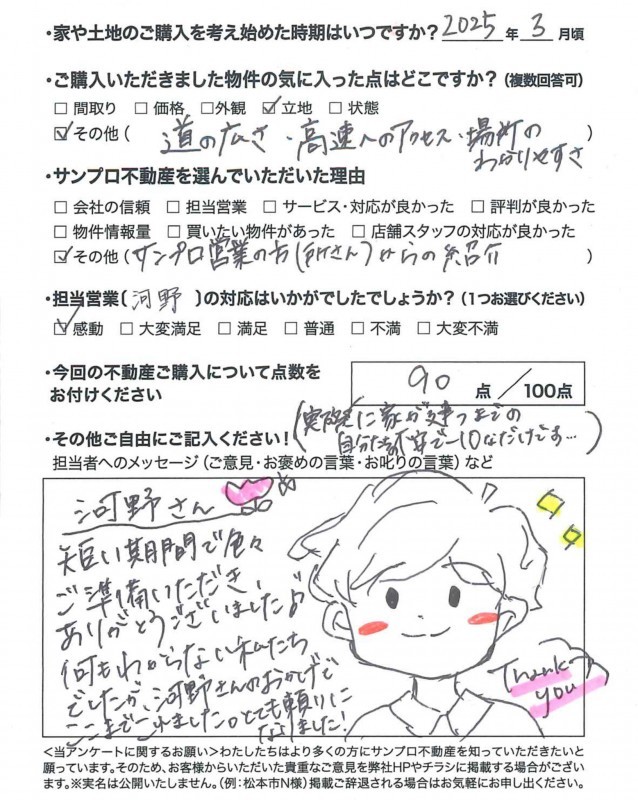 ・家や土地のご購入を考え始めた時期はいつですか? 2025 年 3 月頃
・ご購入いただきました物件の気に入った点はどこですか?(複数回答可)
□ 間取り □ 価格 □外観 ☑ 立地 □ 状態
☑ その他( 道の広さ・高速へのアクセス・場所の
わかりやすさ )
・サンプロ不動産を選んでいただいた理由
□ 会社の信頼 □ 担当営業 □ サービス・対応が良かった □ 評判が良かった
□ 物件情報量 □ 買いたい物件があった □ 店舗スタッフの対応が良かった
☑ その他( サンプロ営業の方(所さん)からの紹介 )
・担当営業〔 河野 〕の対応はいかがでしたでしょうか?(1つお選びください)
☑ 感動 □ 大変満足 □ 満足 □ 普通 □ 不満 □ 大変不満
・今回の不動産ご購入について点数を
お付けください
90 点 / 100点
(実際に家が建つまでの
自分たちの不安で-10なだけです…)
・その他ご自由にご記入ください!
担当者へのメッセージ(ご意見・お褒めの言葉・お叱りの言葉)など
河野さん
短い期間で色々
ご準備いただき、
ありがとうございました♪
何もわからない私たち
でしたが、河野さんのおかげで
ここまでこれました。とても頼りに
なりました!
Thank
you
<当アンケートに関するお願い>わたしたちはより多くの方にサンプロ不動産を知っていただきたいと
願っています。そのため、お客様からいただいた貴重なご意見を弊社HPやチラシに掲載する場合がござい
ます。※実名は公開いたしません。(例:松本市N様)掲載ご辞退される場合はお気軽にお申し出ください。